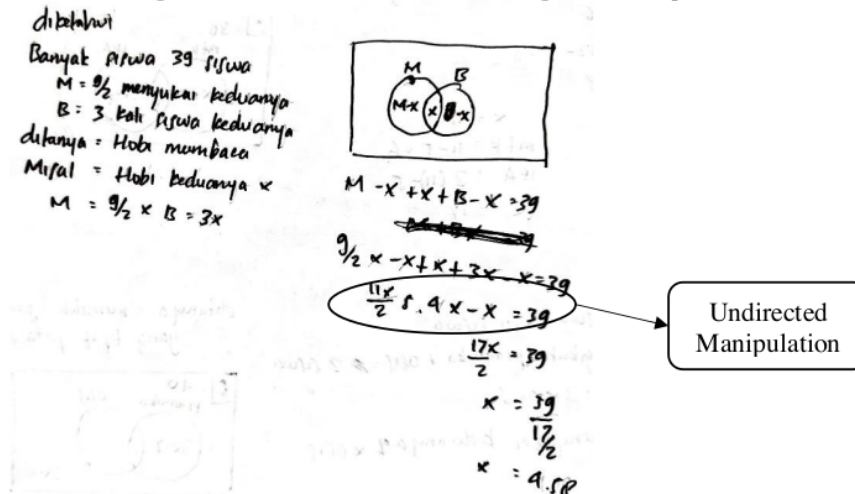 diketahui
Banyak siswa 39 siswa
M = 9/2 menyukai keduanya
B = 3 kali siswa keduanya
ditanya = Hobi membaca
Misal = Hobi keduanya x
M = 9/2 x B = 3x
M B
M-x x B-x
M - x + x + B - x = 39
9/2 x - x + x + 3x - x = 39
11x/2 4x - x = 39
17x/2 = 39
x = 39
17/2
x = 4.58
Undirected
Manipulation